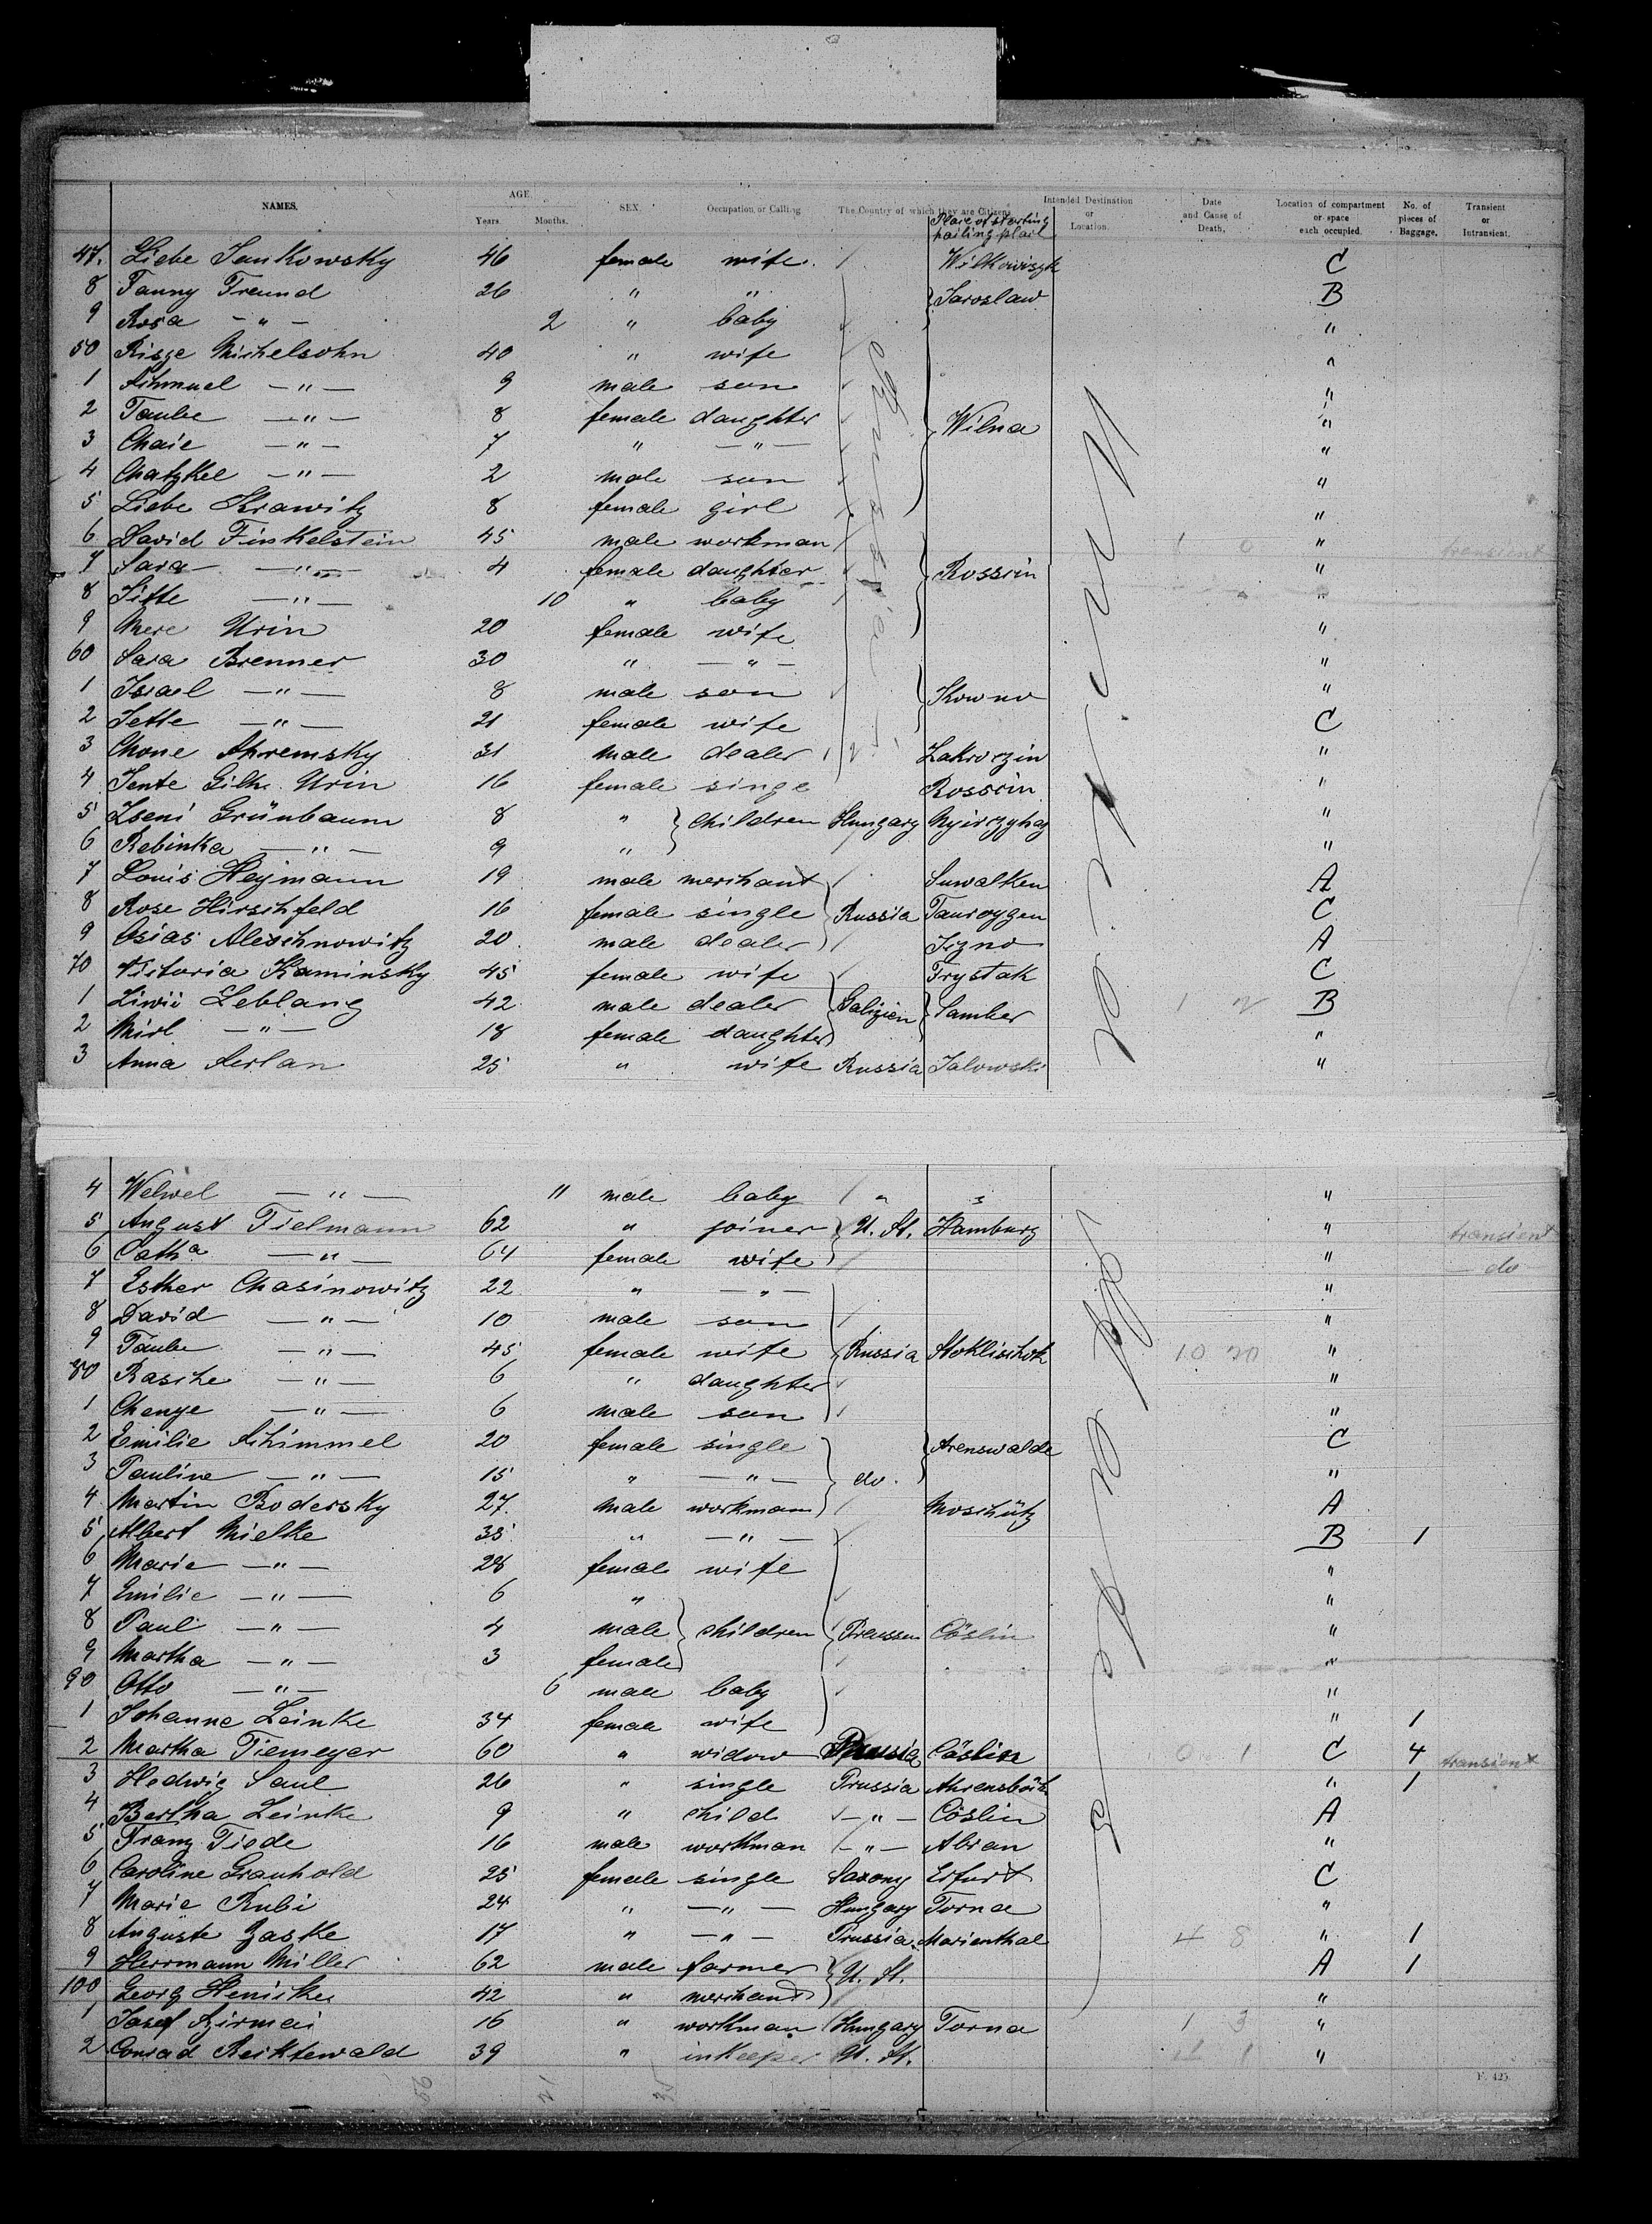 NAMES. AGE. Years. Months. SEX. Occupation or Calling. The Country of which they are Citizens. Place of starting Intended Destination or Location. Date and Cause of Death. Location of compartment or space each occupied. No. of pieces of Baggage. Transient or Intransient.
47. Liebe Jankowsky 46 female wife Wilkowiszk C
8 Fanny Freund 26 " " Jaroslaw B
9 Rosa —"— 2 " baby "
50 Risze Michelsohn 40 " wife "
1 Schmuel —"— 9 male son "
2 Taube —"— 8 female daughter Wilna "
3 Chaie —"— 7 " —"— "
4 Chatzkel —"— 2 male son "
5 Liebe Krawitz 8 female girl "
6 David Finkelstein 45 male workman 1 0 " transient
7 Sara —"— 4 female daughter Rossein "
8 Jitte —"— 10 " baby "
9 Mere Urin 20 female wife "
60 Sara Brenner 30 " —"— "
1 Israel —"— 8 male son Kowno "
2 Jette —"— 21 female wife C
3 Chone Schremsky 31 male dealer Zakroczin "
4 Jente Gilke Urin 16 female singe Rossein "
5 Zseni Grünbaum 8 " children Hungary "
6 Rebinka —"— 9 " "
7 Louis Heymann 19 male merchant Suwalken A
8 Rose Hirschfeld 16 female single Russia Tauroggen C
9 Osias Aleschnowitz 20 male dealer A
70 Victoria Kaminsky 45 female wife Frystak C
1 Ziwii Leblang 42 male dealer Galizien Sambor 1 2 B
2 Mirl —"— 18 female daughter "
3 Anna 25 " wife Russia Jalowski "
4 Welwel —"— 11 male baby " " "
5 August Tielmann 62 " joiner U. St. Hamburg " transient
6 Cath<sup>a</sup> —"— 64 female wife " do
7 Esther Chasinowitz 22 " —"— "
8 David —"— 10 male son "
9 Taube —"— 45 female wife Russia Stoklischok 10 20 "
80 Rasche —"— 6 " daughter "
1 Chenye —"— 6 male son "
2 Emilie Schimmel 20 female single Arenswalde C
3 Pauline —"— 15 " —"— do. "
4 Martin Bodersky 27. male workman Moschütz A
5 Albert Mielke 35 " —"— B 1
6 Marie —"— 28 female wife "
7 Emilie —"— 6 " "
8 Paul —"— 4 male children Preussen Cöslin "
9 Martha —"— 3 female "
90 Otto —"— 6 male baby "
1 Johanne Leinke 34 female wife " 1
2 Martha Tiemeyer 60 " widow Prussia Cöslin 0 1 C 4 transient
3 Hedwig Saul 26 " single Prussia Ahrensböck " 1
4 Bertha Leinke 9 " child —"— Cöslin A
5 Franz Tiede 16 male workman —"— "
6 Caroline Granhold 25 female single Saxony Erfurt C
7 Marie Rubi 24 " —"— Hungary Torna "
8 Auguste Zaske 17 " —"— Prussia Marienthal 4 8 " 1
9 Herrmann Miller 62 male farmer U. St. A 1
100 Georg Henicke 42 " merchant "
1 Josef Szirmai 16 " workman Hungary Torna 1 3 "
2 Conrad Recktewald 39 " inkeeper U. St. 4 1 "
F. 425.